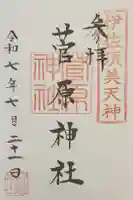 伊佐須美天神
参拝
菅原神社
菅原
神社
令和七年七月二十一日